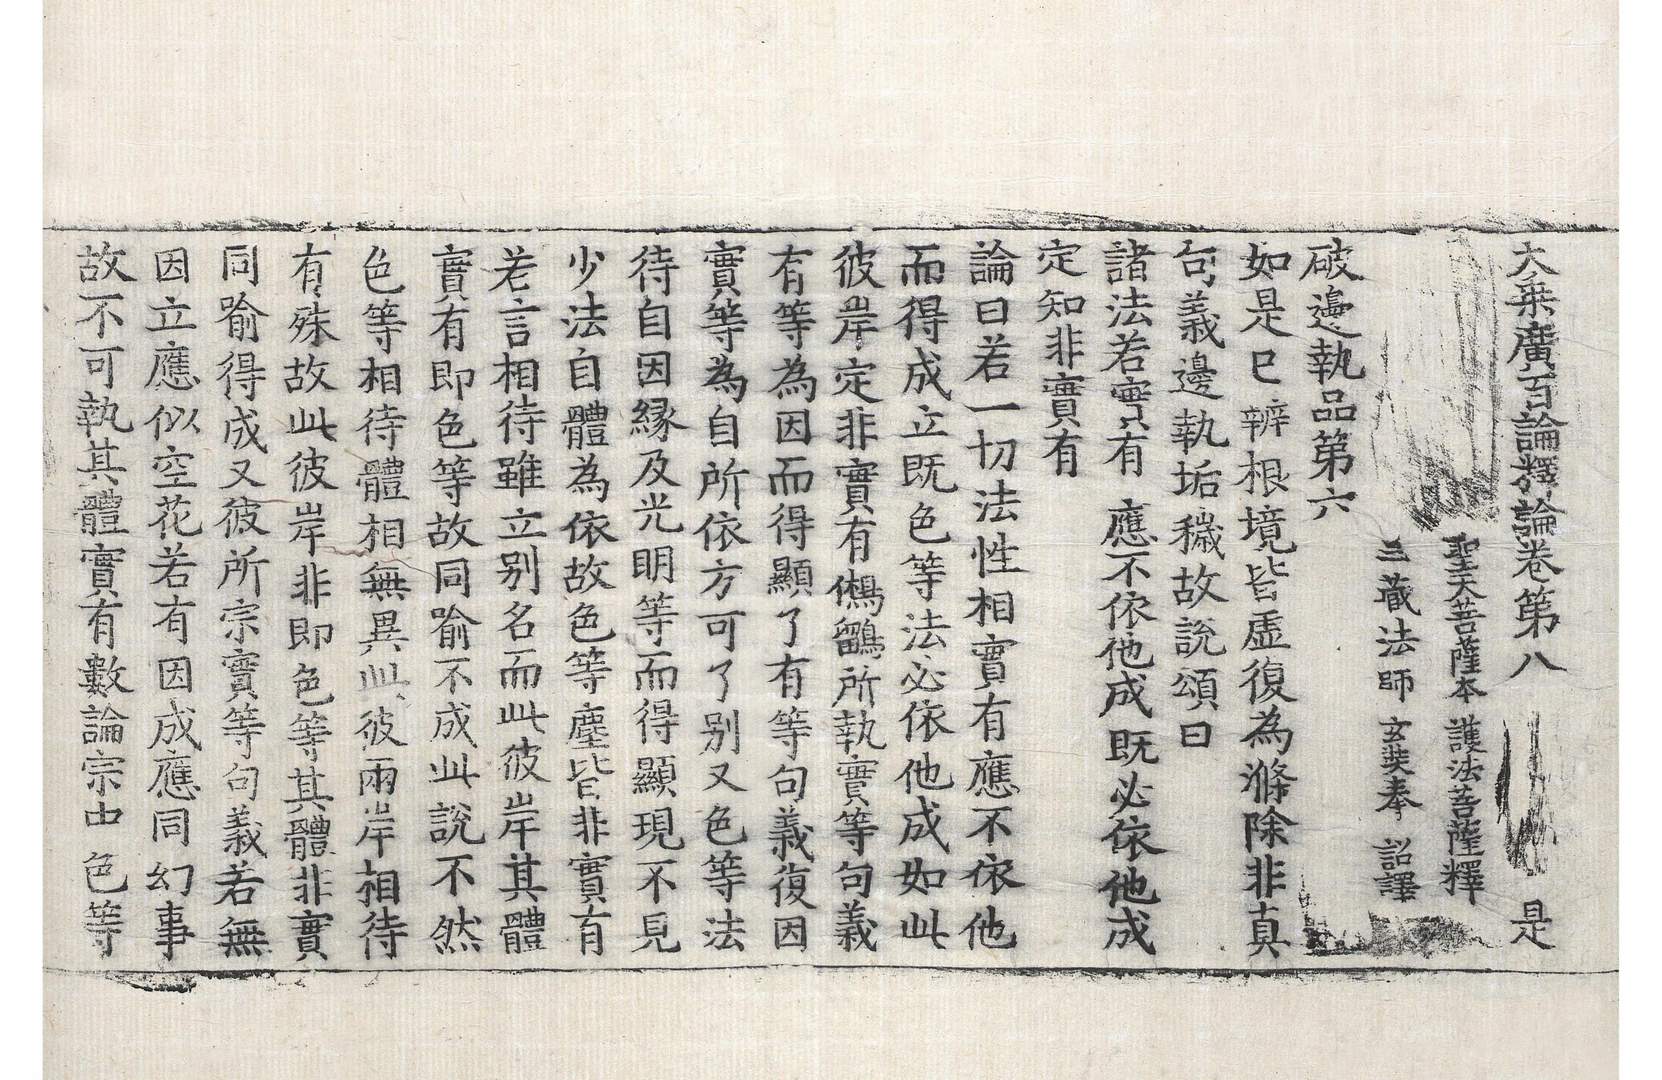 大乗廣百論釋論卷第八 是
聖天菩薩本 護法菩薩釋
三藏法師 玄奘奉 詔譯
破邊執品第六
如是已辨根境皆虛復為滌除非真
句義邊執垢穢故說頌曰
諸法若實有 應不依他成 既必依他成
定知非實有
論曰若一切法性相實有應不依他
而得成立既色等法必依他成如此
彼岸定非實有鵂鶹所執實等句義
有等為因而得顯了有等句義復因
實等為自所依方可了别又色等法
待自因縁及光明等而得顯現不見
少法自體為依故色等塵皆非實有
若言相待雖立别名而此彼岸其體
實有即色等故同喻不成此說不然
色等相待體相無異此彼兩岸相待
有殊故此彼岸非即色等其體非實
同喻得成又彼所宗實等句義若無
因立應似空花若有因成應同幻事
故不可執其體實有數論宗中色等